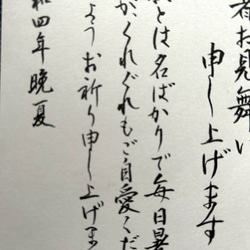 暑お見舞い
申し上げます
とは名ばかりで毎日暑
がくれぐれもご自愛くだ
ようお祈り申し上げま
和四年晩夏